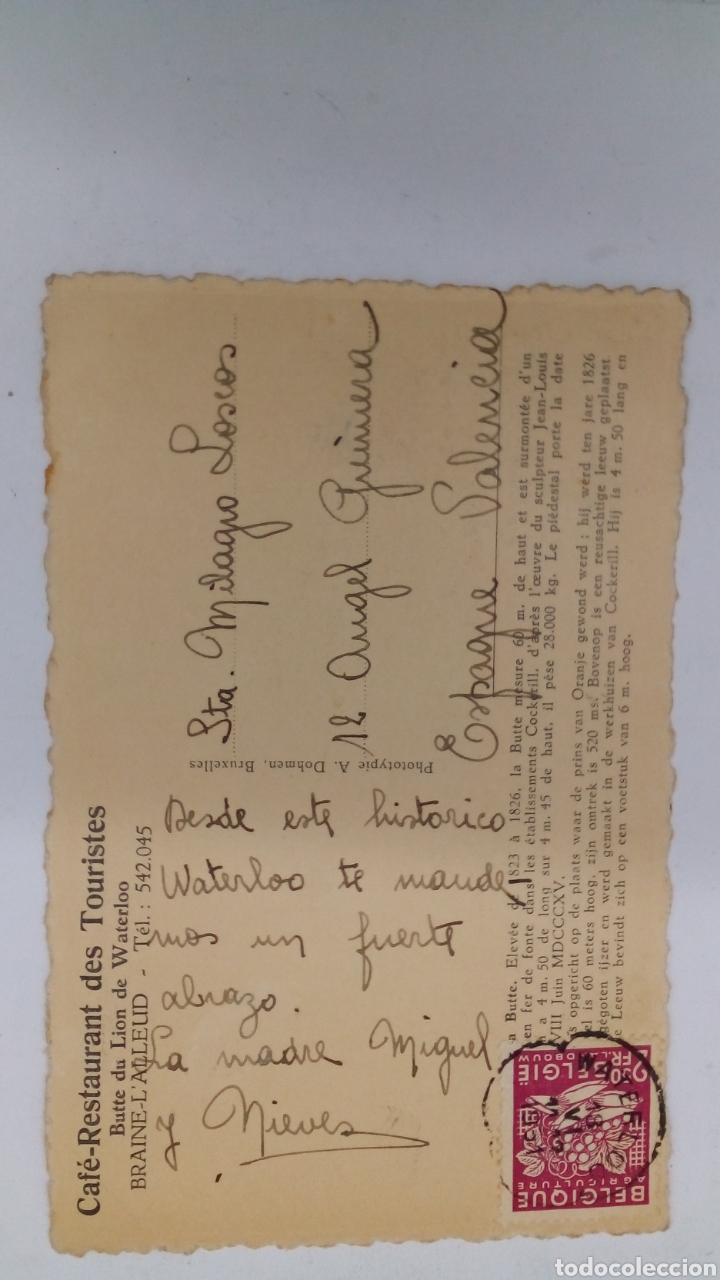 Café-Restaurant des Touristes
Butte du Lion de Waterloo
BRAINE-L'ALLEUD - Tél.: 542.045
Desde este historico
Waterloo te mande
mos un fuerte
abrazo.
La madre Miguel
y Nieves
Phototypie A. Dohmen, Bruxelles
Sta. Milagro Loscos
12 Angel Guimera
Espagne Valencia
a Butte. Elevée de 1823 à 1826, la Butte mesure 60 m. de haut et est surmontée d'un
en fer de fonte dans les établissements Cockerill, d'après l'œuvre du sculpteur Jean-Louis
a 4 m. 50 de long sur 4 m. 45 de haut, il pèse 28.000 kg. Le piédestal porte la date
VIII Juin MDCCCXV.
s opgericht op de plaats waar de prins van Oranje gewond werd : hij werd ten jare 1826
el is 60 meters hoog, zijn omtrek is 520 ms. Bovenop is een reusachtige leeuw geplaatst
gegoten ijzer en werd gemaakt in de werkhuizen van Cockerill. Hij is 4 m. 50 lang en
e Leeuw bevindt zich op een voetstuk van 6 m. hoog.
BELGIQUE
AGRICULTURE
LANDBOUW
BELGIË
2,50 FR.
todocoleccion